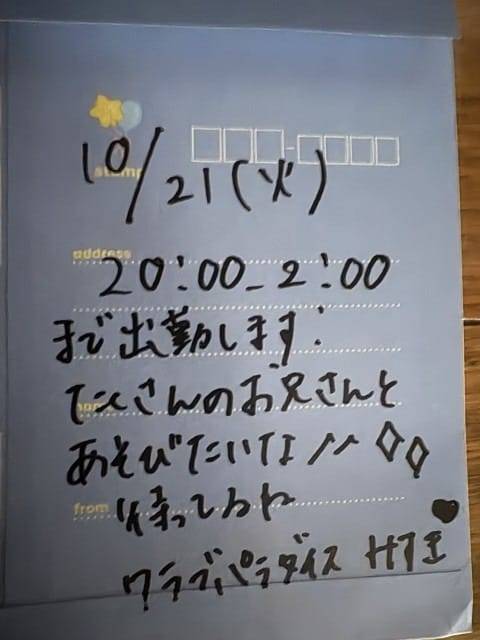 stamp
10/21(火)
address
20:00-2:00
まで出勤します!
たくさんのお兄さんと
あそびたいな〃◇◇
from
待ってるね
クラブパラダイス